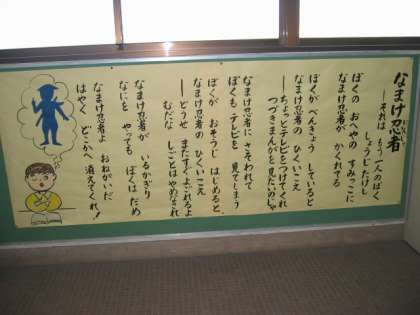 なまけ忍者
―それは もう一人のぼく
しょうじ たけし
ぼくの おへやの すみっこに
なまけ忍者が かくれてる
ぼくが べんきょう していると
なまけ忍者の ひくいこえ
―ちょっとテレビを つけてくれ
つづきまんがを 見たいのじゃ
なまけ忍者に さそわれて
ぼくも テレビを 見てしまう
ぼくが おそうじ はじめると
なまけ忍者の ひくいこえ
―どうせ またすぐ よごれるよ
むだな しごとは やめなされ
なまけ忍者が いるかぎり
なにを やっても ぼくは だめ
なまけ忍者よ おねがいだ
はやく どこかへ 消えてくれ!